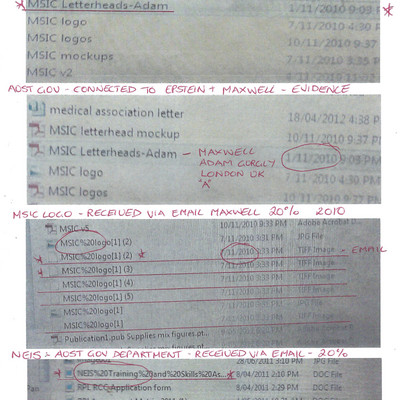 MSIC Letterheads-Adam 1/11/2010 9:03 P
MSIC logo 7/11/2010 4:30 P
MSIC logos 10/11/2010 9:37
MSIC mockups 7/11/2010 3:35 P
MSIC v2
AOST GOV - CONNECTED TO EPSTEIN + MAXWELL - EVIDENCE
medical association letter 18/04/2012 4:38 P
MSIC letterhead mockup 10/11/2010 9:37 P
MSIC Letterheads-Adam - MAXWELL 1/11/2010 9:03 PM
ADAM
LONDON UK
"A"
MSIC logo 7/11/2010 4:30 PM
MSIC logos 10/11/2010 9:37
MSIC LOGO - RECEIVED VIA EMAIL MAXWELL 20% 2010
MSIC v5 10/11/2010 9:33 PM Adobe Acrobat
MSIC%20logo[1] (2) 7/11/2010 3:31 PM JPG File
MSIC%20logo[1] (2) 7/11/2010 3:31 PM TIFF Image - EMAIL
MSIC%20logo[1] (3) 7/11/2010 3:31 PM TIFF Image
MSIC%20logo[1] (4) 7/11/2010 3:31 PM TIFF Image
MSIC%20logo[1] (5) 7/11/2010 3:31 PM TIFF Image
MSIC%20logo[1] JPG File
MSIC%20logo[1] TIFF Image
Publication1.pub Supplies mix figures.pt...
NEIS = AOST GOV DEPARTMENT - RECEIVED VIA EMAIL - 20%
28/06/2011 3:10 PM JPG File
NEIS%20Training%20and%20Skills%20As... 8/04/2011 2:10 PM DOC File
RPL RCC Application form. 8/04/2011 2:29 PM DOC File